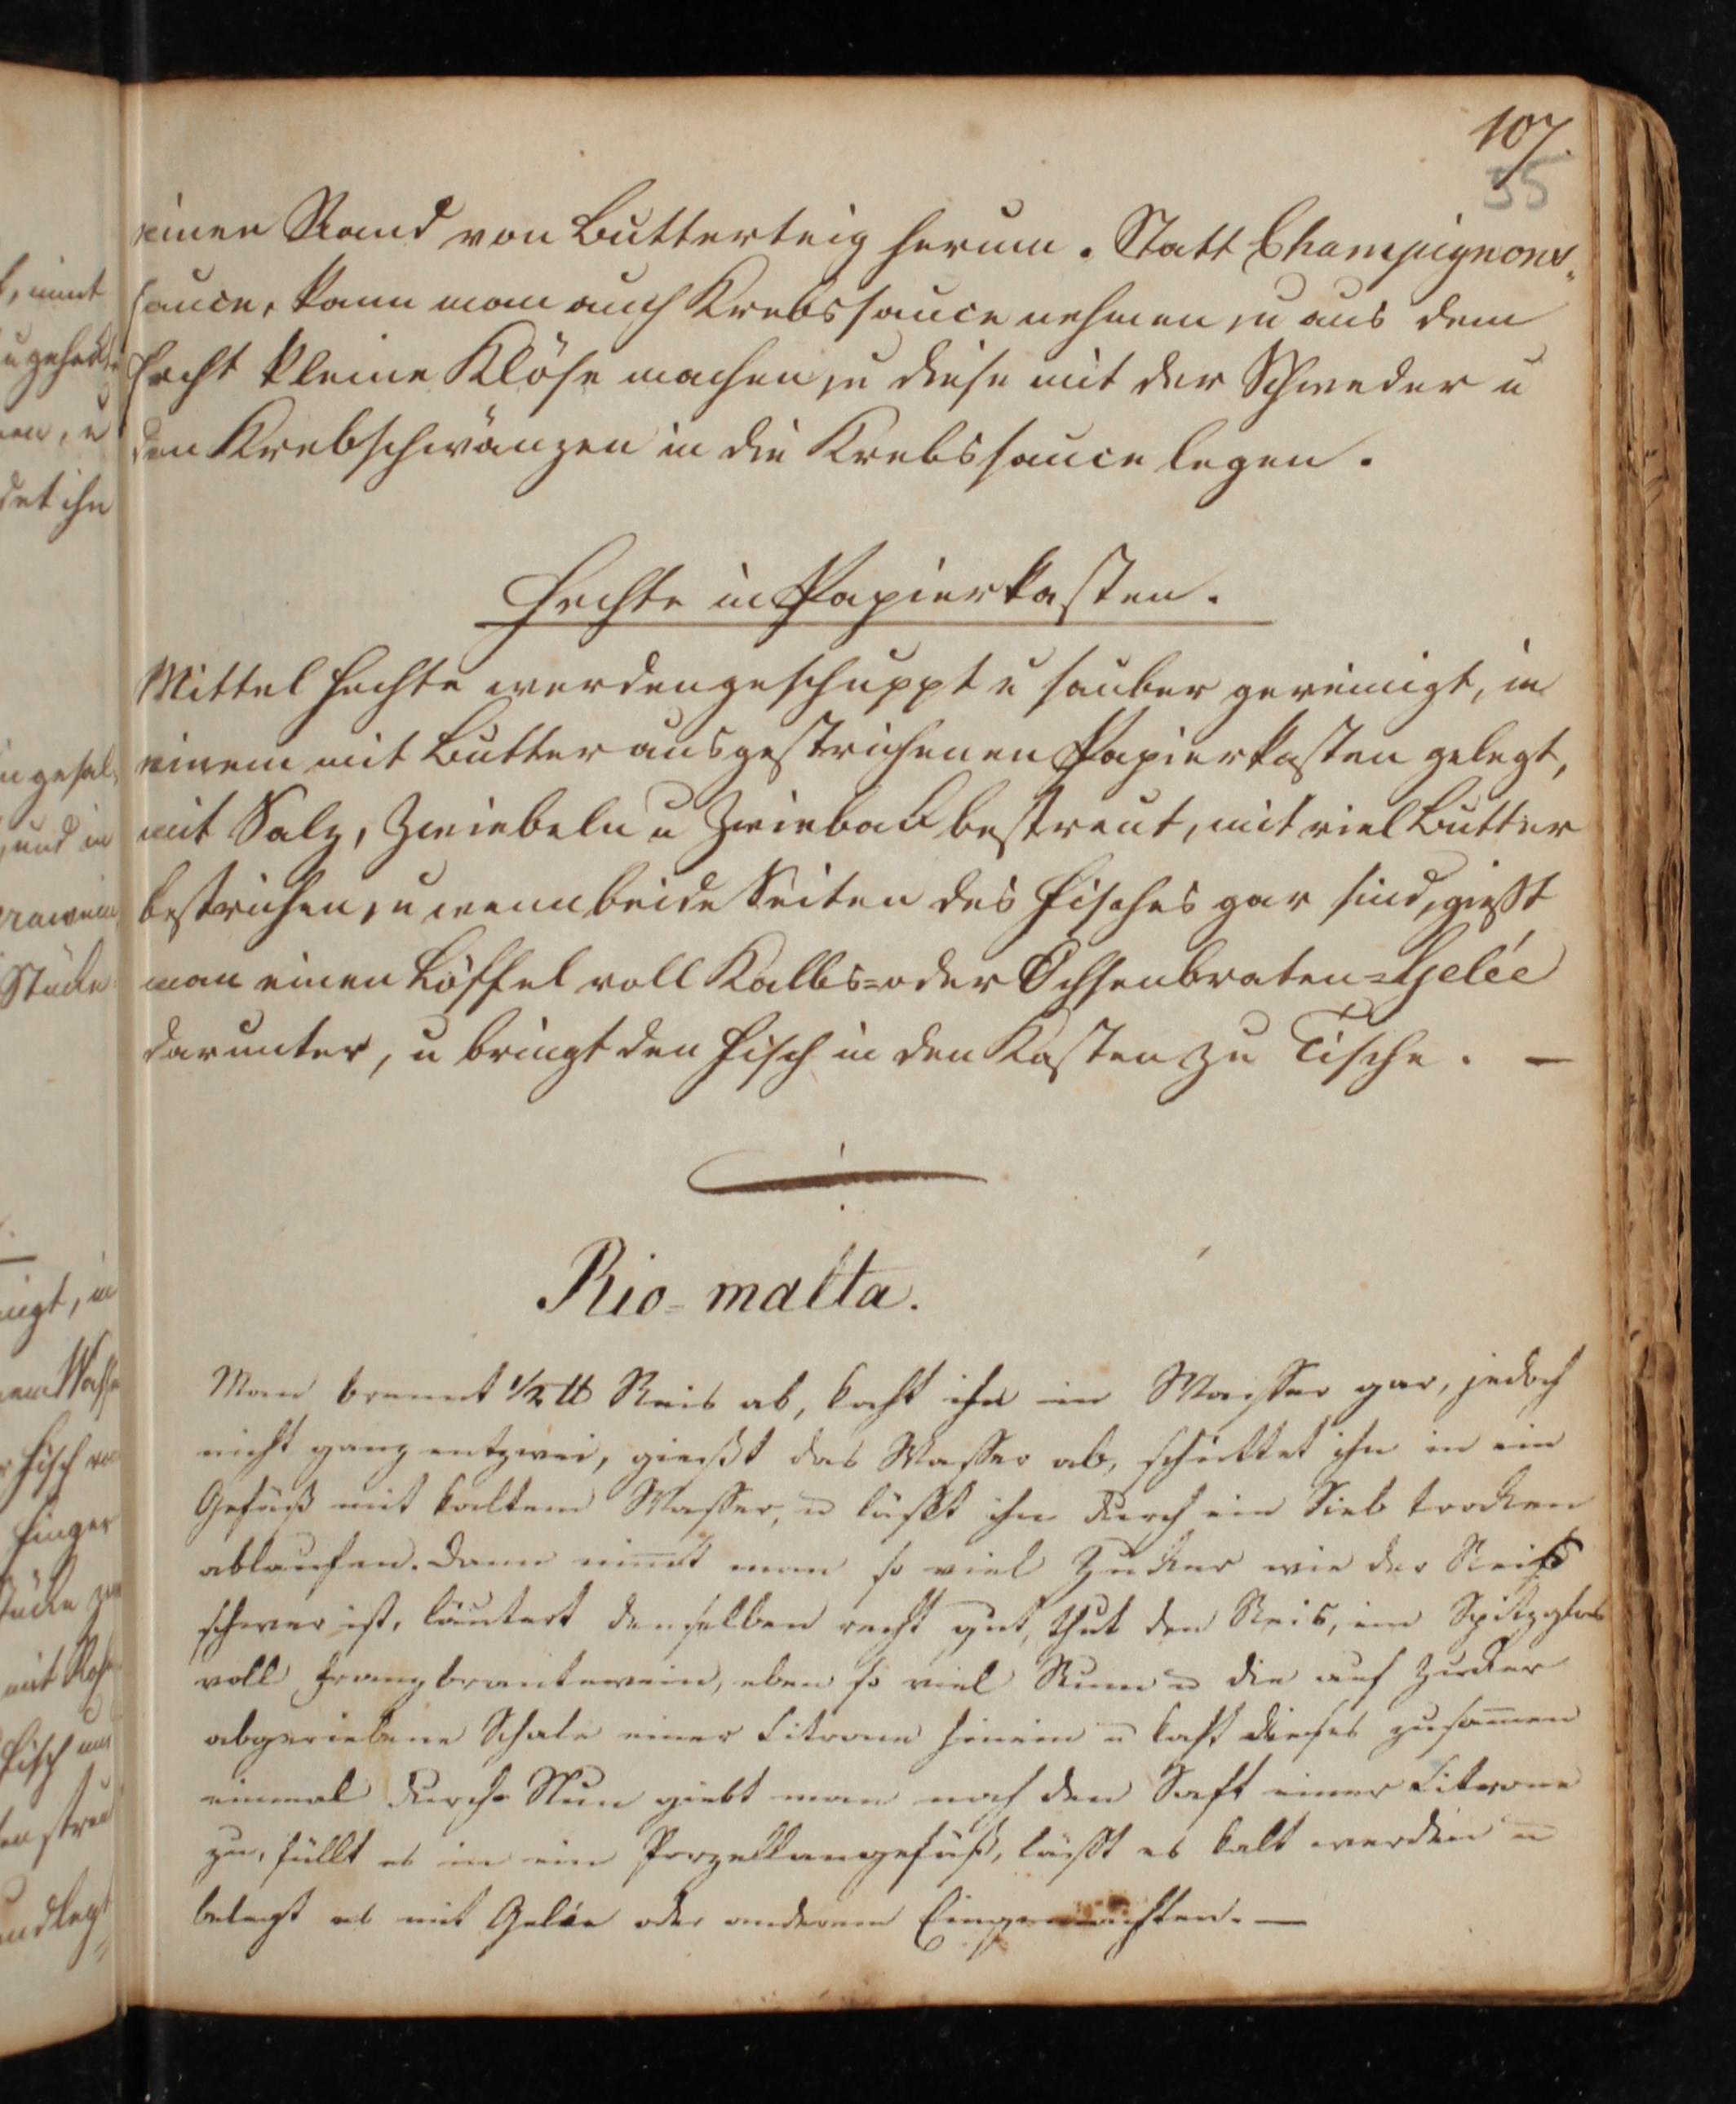 107.
35
einen Rand von Butterteig herum. Statt Champignons-
sauce, kann man auch Krebssauce nehmen, u aus dem
Hecht kleine Klöße machen, u diese mit der Schweder u
den Krebschwänzen in die Krebssauce legen.
Hechte in Papierkasten.
Mittel Hechte werden geschuppt u sauber gereinigt, in
einem mit Butter ausgestrichenen Papierkasten gelegt,
mit Salz, Zwiebeln u Zwieback bestreut, mit viel Butter
bestrichen, u wenn beide Seiten des Fisches gar sind, gießt
man einen Löffel voll Kalbs- oder Ochsenbraten-Gelée
darunter, u bringt den Fisch in den Kasten zu Tische. —
Rio-malta.
Man brennt 1/2 ℔ Reis ab, kocht ihn in Wasser gar, jedoch
nicht ganz entzwei, gießt das Wasser ab, schüttet ihn in ein
Gefäß mit kaltem Wasser, u läßt ihn durch ein Sieb trocken
ablaufen. Dann nim̅t man so viel Zucker wie der Reis
schwer ist, läutert denselben recht gut, thut den Reis, ein Spitzglas
voll Franzbrantewein, eben so viel Rum u die auf Zucker
abgeriebene Schale einer Citrone hinein u kocht dieses zusam̅en
einmal durch. Nun giebt man noch den Saft einer Citrone
zu, füllt es in ein Porzellangefäß, läßt es kalt werden u
belegt es mit Gelée oder anderem Eingemachten. —